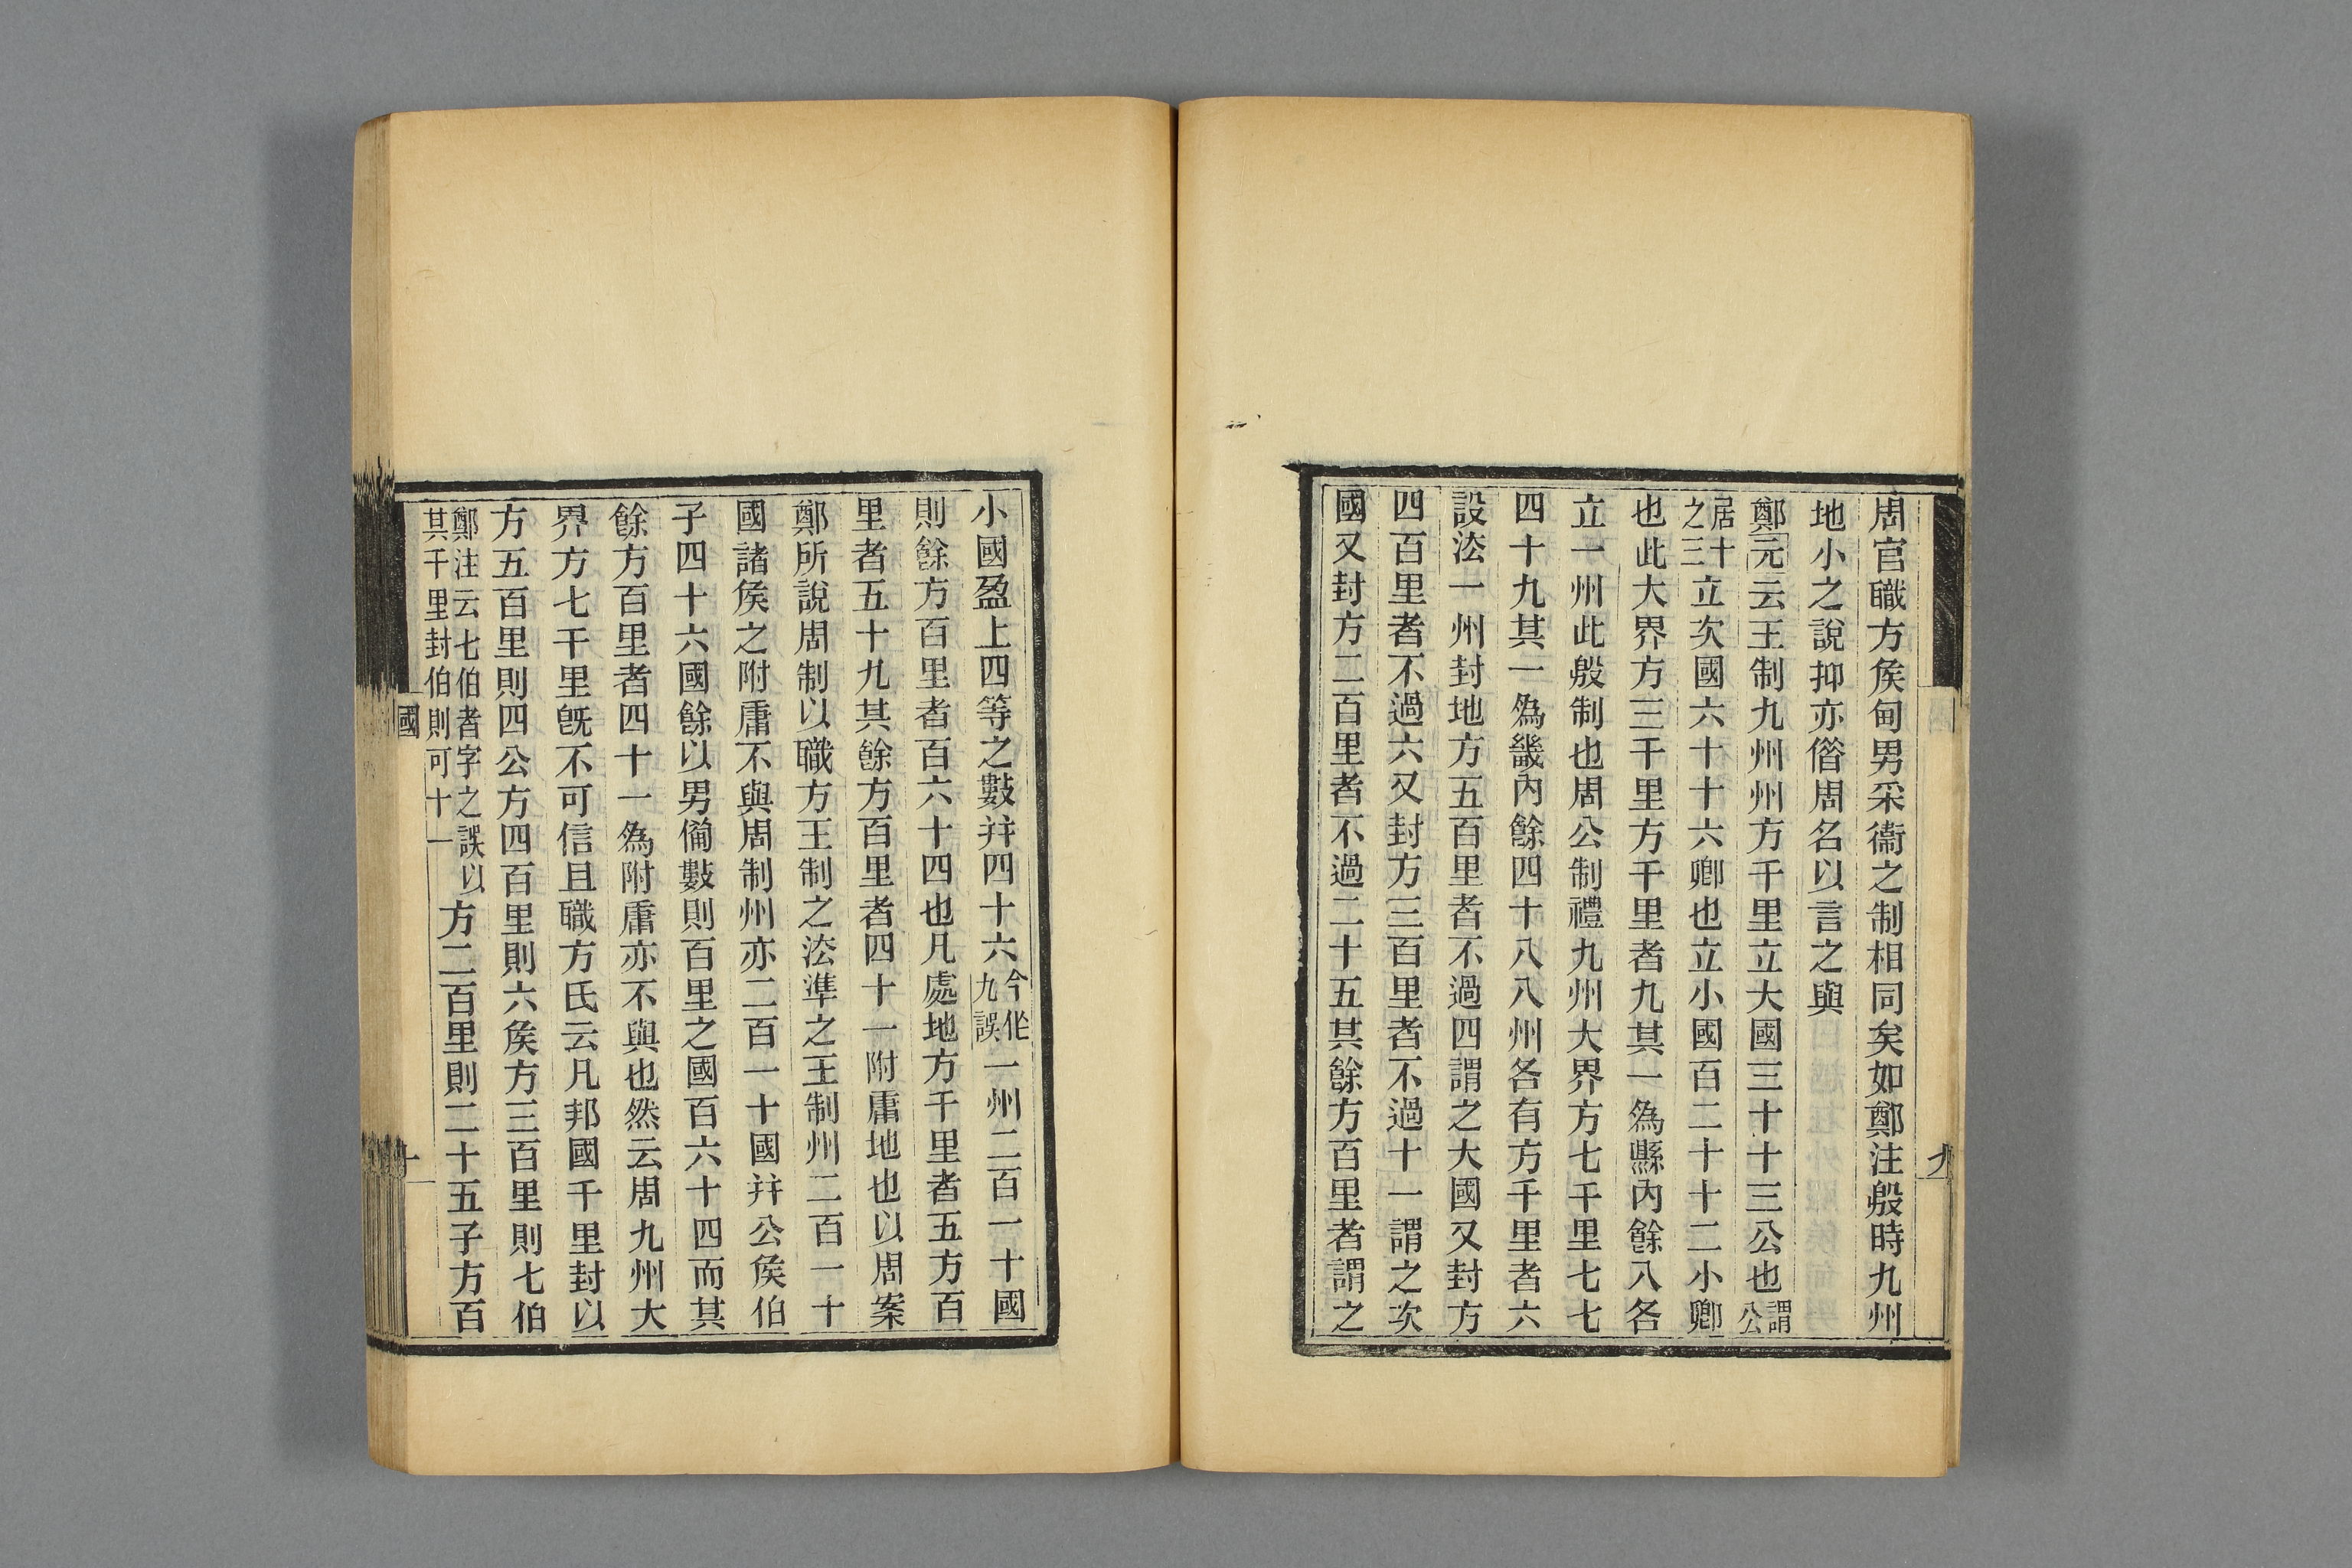 周官職方矦甸男采衞之制相同矣如鄭注殷時九州
地小之說抑亦偺周名以言之與
鄭元云王制九州州方千里立大國三十十三公也謂公
居十之三立次國六十十六卿也立小國百二十十二小卿
也此大界方三千里方千里者九其一爲縣內餘八各
立一州此殷制也周公制禮九州大界方七千里七七
四十九其一爲畿內餘四十八八州各有方千里者六
設法一州封地方五百里者不過四謂之大國又封方
四百里者不過六又封方三百里者不過十一謂之次
國又封方二百里者不過二十五其餘方百里者謂之
九
小國盈上四等之數幷四十六今作九誤一州二百一十國
則餘方百里者百六十四也凡處地方千里者五方百
里者五十九其餘方百里者四十一附庸地也以周案
鄭所說周制以職方王制之法準之王制州二百一十
國諸矦之附庸不與周制州亦二百一十國幷公矦伯
子四十六國餘以男備數則百里之國百六十四而其
餘方百里者四十一爲附庸亦不與也然云周九州大
界方七千里旣不可信且職方氏云凡邦國千里封以
方五百里則四公方四百里則六矦方三百里則七伯
鄭注云七伯者字之誤以其千里封伯則可十一方二百里則二十五子方百
國
十